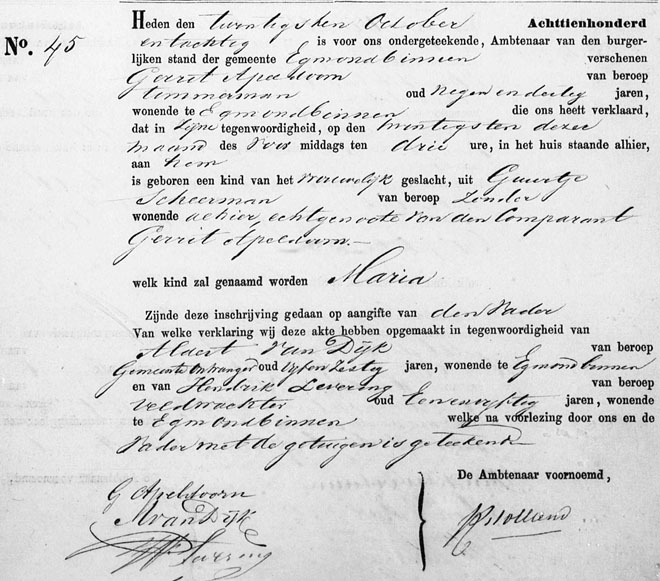 Heden den twintigsten October Achttienhonderd
No. 45 en tachtig is voor ons ondergeteekende, Ambtenaar van den burger-
lijken stand der gemeente Egmondbinnen verschenen
Gerrit Apeldoorn van beroep
timmerman oud negen en dertig jaren,
wonende te Egmondbinnen die ons heeft verklaard,
dat in zijne tegenwoordigheid, op den twintigsten dezer
maand des voor middags ten drie ure, in het huis staande alhier,
aan hem
is geboren een kind van het vrouwelijk geslacht, uit Guurtje
Scheerman van beroep zonder
wonende alhier, echtgenoote van den Comparant
Gerrit Apeldoorn.—
welk kind zal genaamd worden Maria
Zijnde deze inschrijving gedaan op aangifte van den Vader
Van welke verklaring wij deze akte hebben opgemaakt in tegenwoordigheid van
Aldert van Dijk van beroep
Gemeente Ontvanger oud vijf en zestig jaren, wonende te Egmondbinnen
en van Hendrik Levering van beroep
Veldwachter oud een en vijftig jaren, wonende
te Egmondbinnen welke na voorlezing door ons en de
Vader met de getuigen is geteekend
De Ambtenaar voornoemd,
G Apeldoorn
A van Dijk